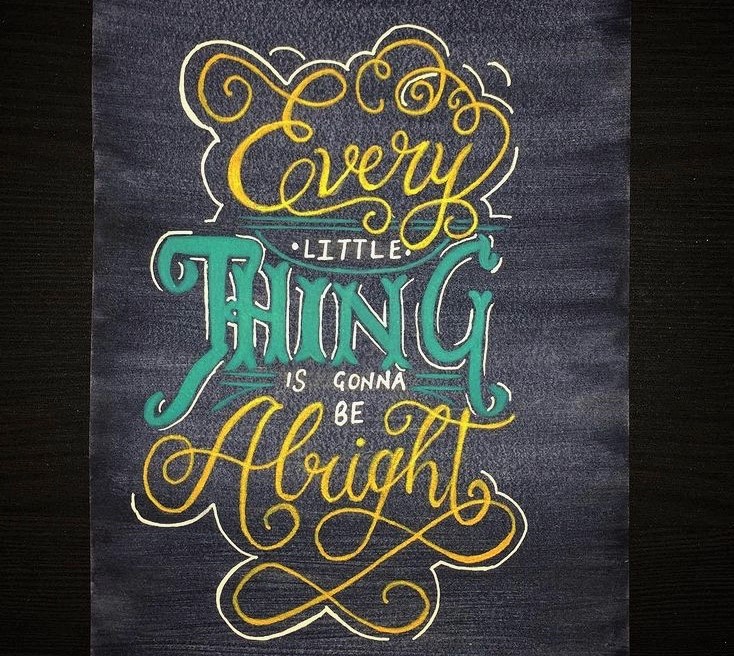 Every
·LITTLE·
THING
IS GONNA
BE
Alright